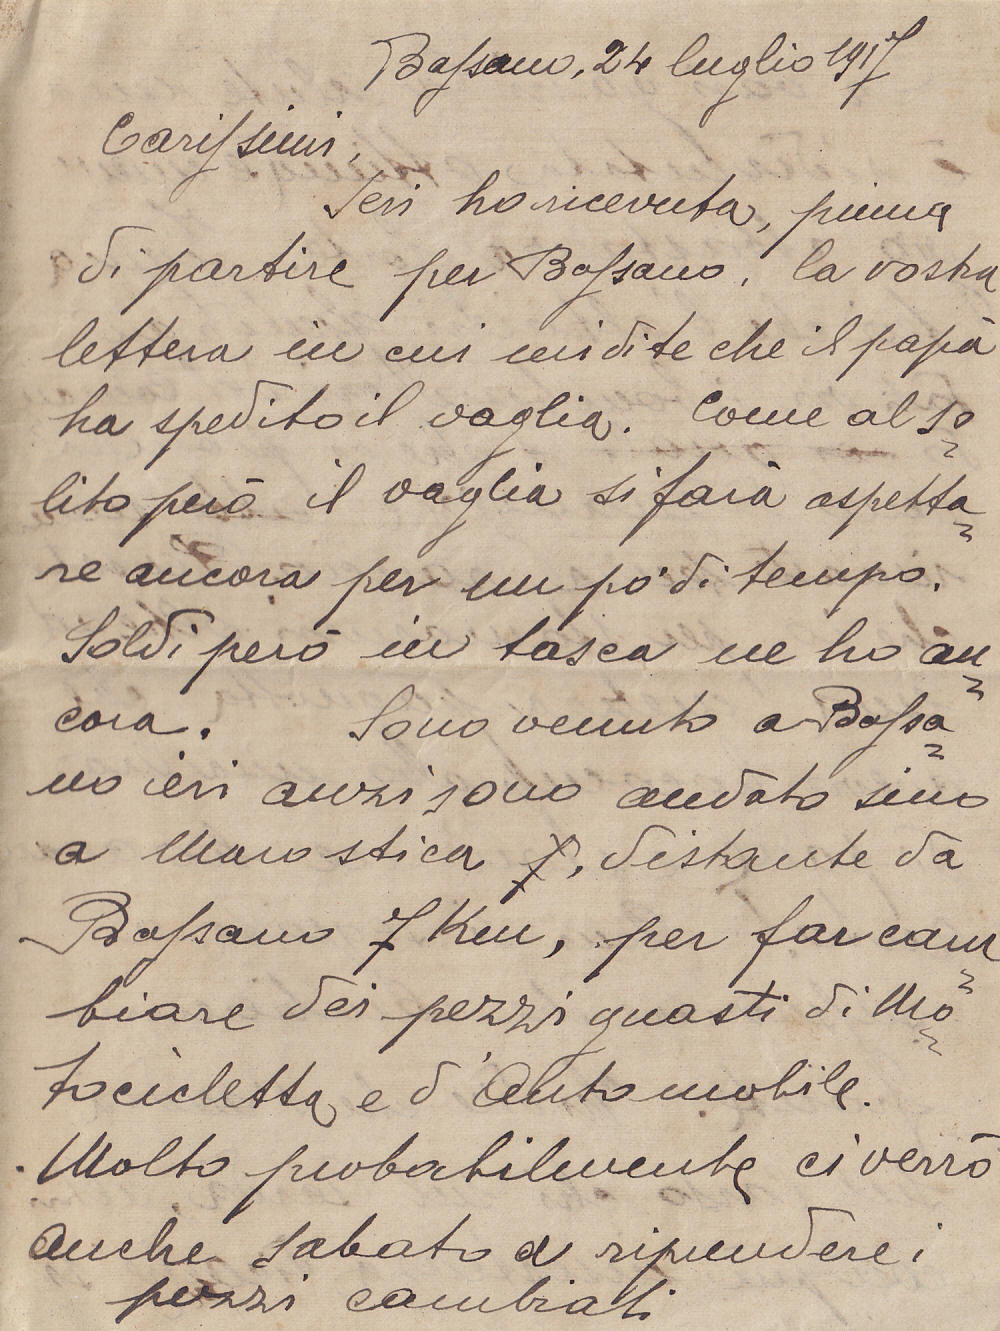 Bassano, 24 luglio 1917
Carissimi,
Ieri ho ricevuta, prima
di partire per Bassano, la vostra
lettera in cui mi dite che il papà
ha spedito il vaglia. Come al so
lito però il vaglia si farà aspetta
re ancora per un po' di tempo.
Soldi però in tasca ne ho an
cora. Sono venuto a Bassa
no ieri anzi sono andato sino
a Marostica, distante da
Bassano 7 Km, per far cam
biare dei pezzi guasti di Mo
tocicletta e d'Automobile.
Molto probabilmente ci verrò
anche sabato a riprendere i
pezzi cambiati